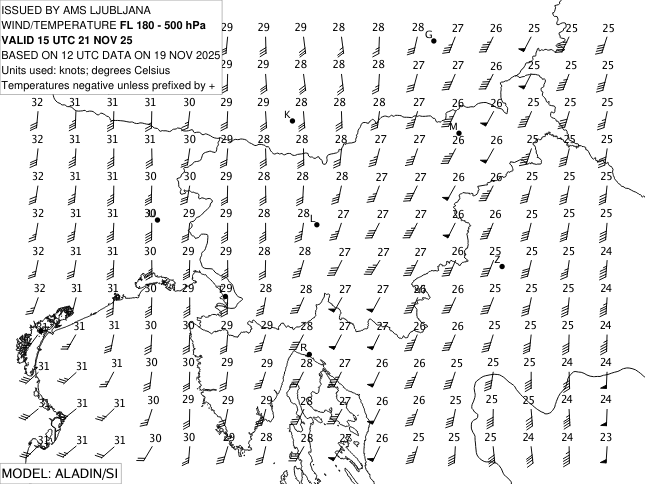 ISSUED BY AMS LJUBLJANA
WIND/TEMPERATURE FL 180 - 500 hPa
VALID 15 UTC 21 NOV 25
BASED ON 12 UTC DATA ON 19 NOV 2025
Units used: knots; degrees Celsius
Temperatures negative unless prefixed by +
29 29 28 28 28 G 27 26 25 25 25
29 29 28 28 27 26 26 25 25 25
32 31 31 31 30 29 29 K 28 28 28 27 26 26 25 25 25
32 31 31 31 30 29 28 28 28 27 27 M 26 26 25 25 25
32 31 31 30 30 29 28 28 28 27 27 26 26 25 25 25
32 31 31 30 29 29 28 28 L 27 27 27 26 26 25 25 25
32 31 31 30 29 29 28 28 27 27 27 26 25 Z 25 25 24
32 31 31 30 29 29 28 28 27 27 26 26 25 25 25 24
31 31 31 30 30 29 29 28 27 27 26 26 25 25 25 24
31 31 31 30 30 29 29 28 R 27 26 26 25 25 24 24
31 31 31 30 29 29 28 28 27 26 26 25 25 24 24
31 31 31 30 30 29 28 28 27 26 25 25 24 24 23
MODEL: ALADIN/SI